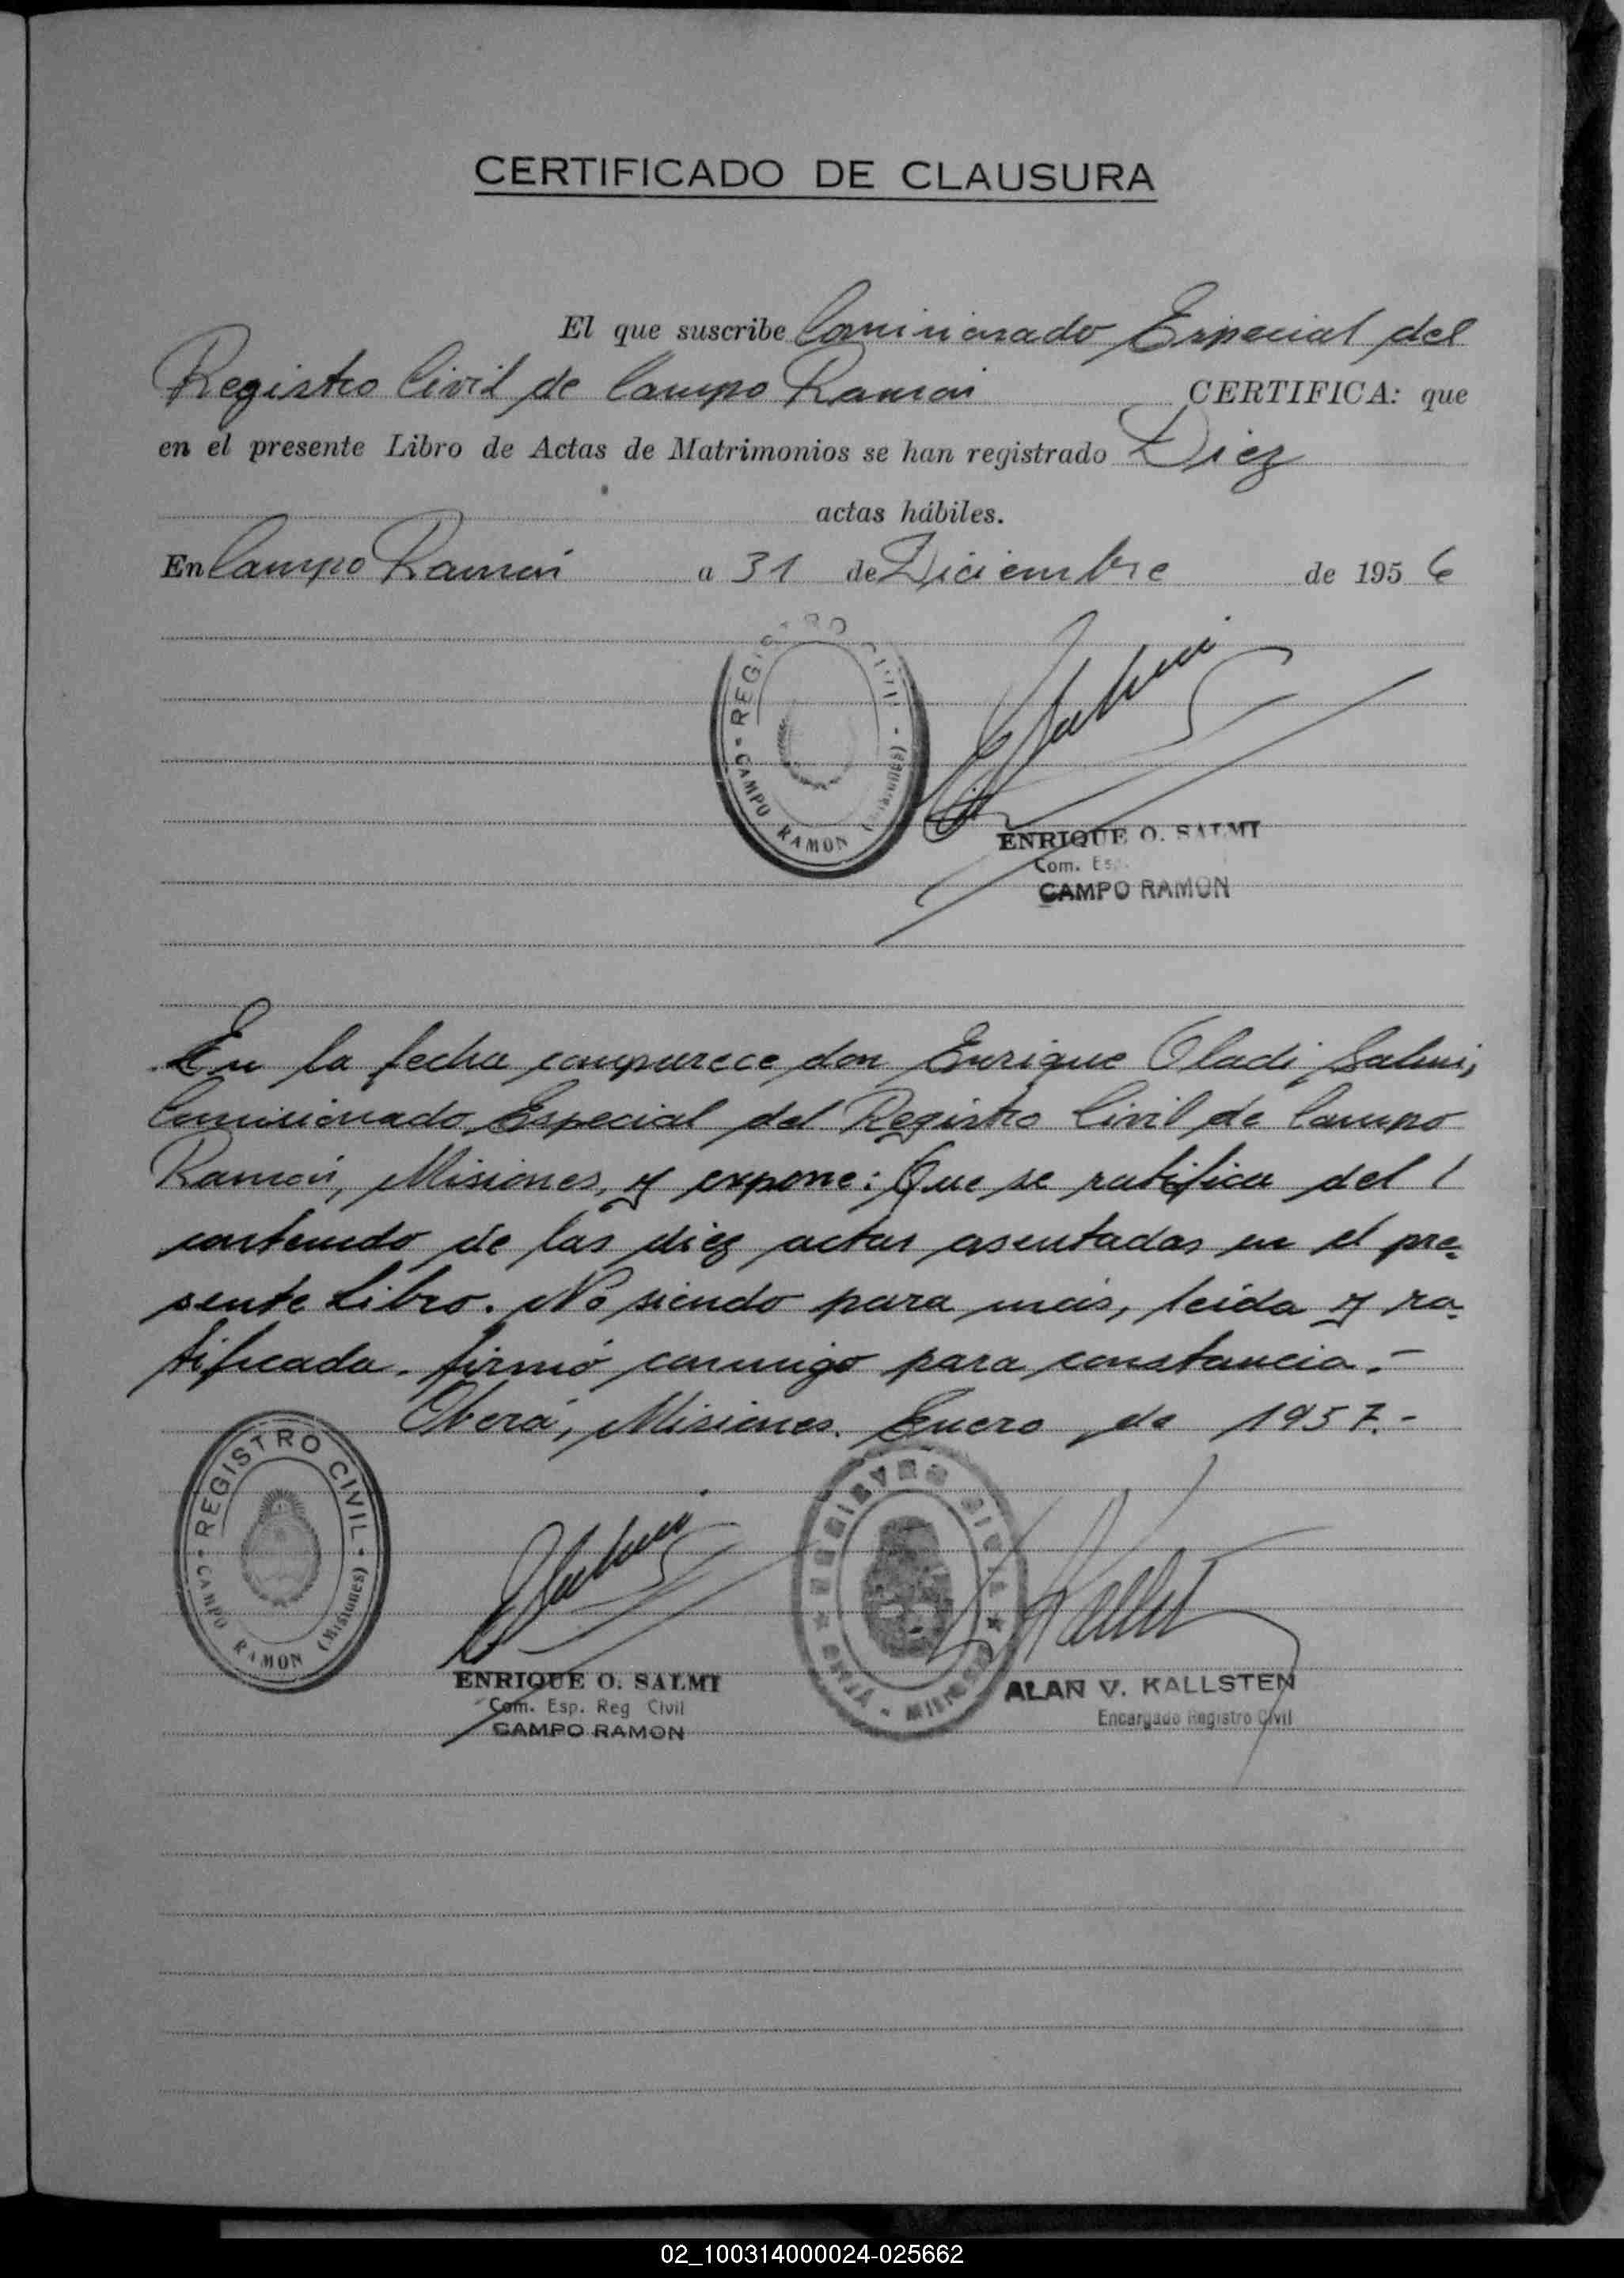 CERTIFICADO DE CLAUSURA
El que suscribe Comisionado Especial del
Registro Civil de Campo Ramón CERTIFICA: que
en el presente Libro de Actas de Matrimonios se han registrado Diez
actas hábiles.
En Campo Ramón a 31 de Diciembre de 1956
REGISTRO CIVIL - CAMPO RAMON (Misiones)
ENRIQUE O. SALMI
Com. Es
CAMPO RAMON
En la fecha comparece don Enrique Oladi Salmi,
Comisionado Especial del Registro Civil de Campo
Ramón, Misiones, y expone: Que se ratifica del
contenido de las diez actas asentadas en el pre-
sente Libro. No siendo para más, leida y ra-
tificada, firmó conmigo para constancia.-
Oberá, Misiones. Enero de 1957.-
REGISTRO CIVIL - CAMPO RAMON (Misiones)
ENRIQUE O. SALMI
Com. Esp. Reg Civil
CAMPO RAMON
ALAN V. KALLSTEN
Encargado Registro Civil
02_100314000024-025662